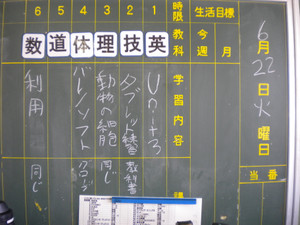 6月22日火曜日
当番
生活目標
今週
月
時限
教科
学習内容
1
英
Unit3
2
技
タブレット練習
教科書
3
理
動物の細胞
同じ
4
体
バレ/ソフト
5
道
6
数
利用
同じ